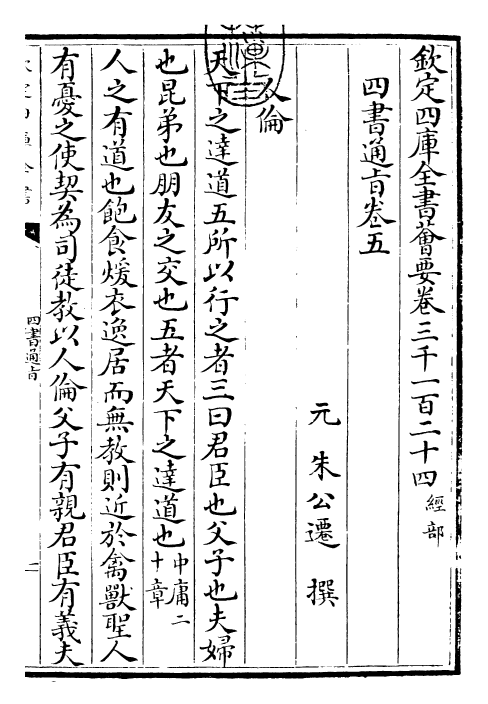 欽定四庫全書薈要卷三千一百二十四 經部
四書通旨卷五
元 朱公遷 撰
人倫
天下之達道五所以行之者三曰君臣也父子也夫婦
也昆弟也朋友之交也五者天下之達道也 中庸二十章
人之有道也飽食煖衣逸居而無教則近於禽獸聖人
有憂之使契為司徒教以人倫父子有親君臣有義夫
四書通旨
一